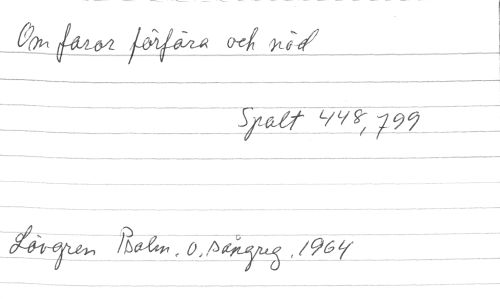 Om faror förfära och nöd
Spalt 448, 799
Lövgren Psalm. o. sångreg. 1964